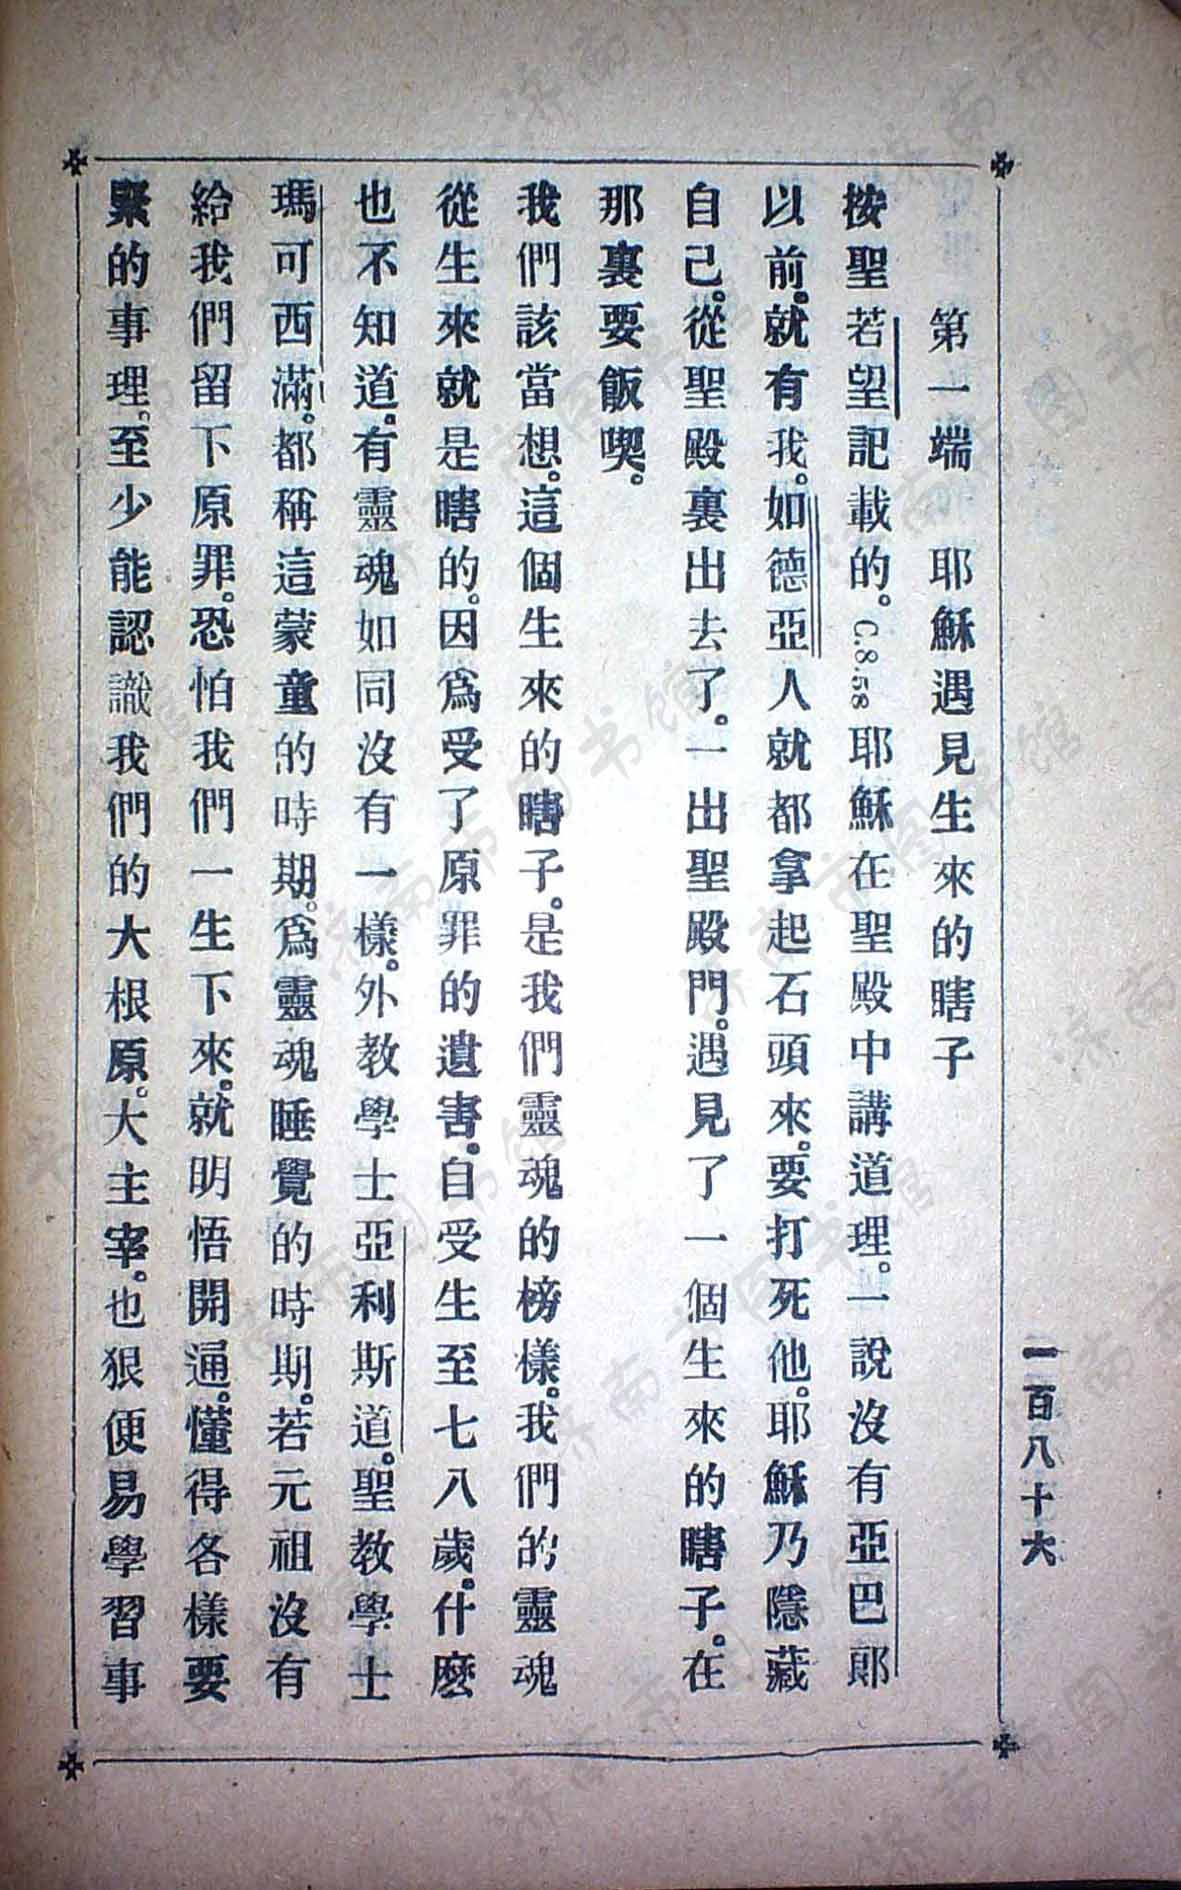 一百八十六
第一端　耶穌遇見生來的瞎子
按聖若望記載的。C.8.58耶穌在聖殿中講道理。一說沒有亞巴郎
以前。就有我。如德亞人就都拿起石頭來。要打死他。耶穌乃隱藏
自己。從聖殿裏出去了。一出聖殿門。遇見了一個生來的瞎子。在
那裏要飯喫。
我們該當想。這個生來的瞎子。是我們靈魂的榜樣。我們的靈魂
從生來就是瞎的。因爲受了原罪的遺害。自受生至七八歲。什麼
也不知道。有靈魂如同沒有一樣。外教學士亞利斯道。聖教學士
瑪可西滿。都稱這蒙童的時期。爲靈魂睡覺的時期。若元祖沒有
給我們留下原罪。恐怕我們一生下來。就明悟開通。懂得各樣要
緊的事理。至少能認識我們的大根原。大主宰。也狠便易學習事
济南市图书馆